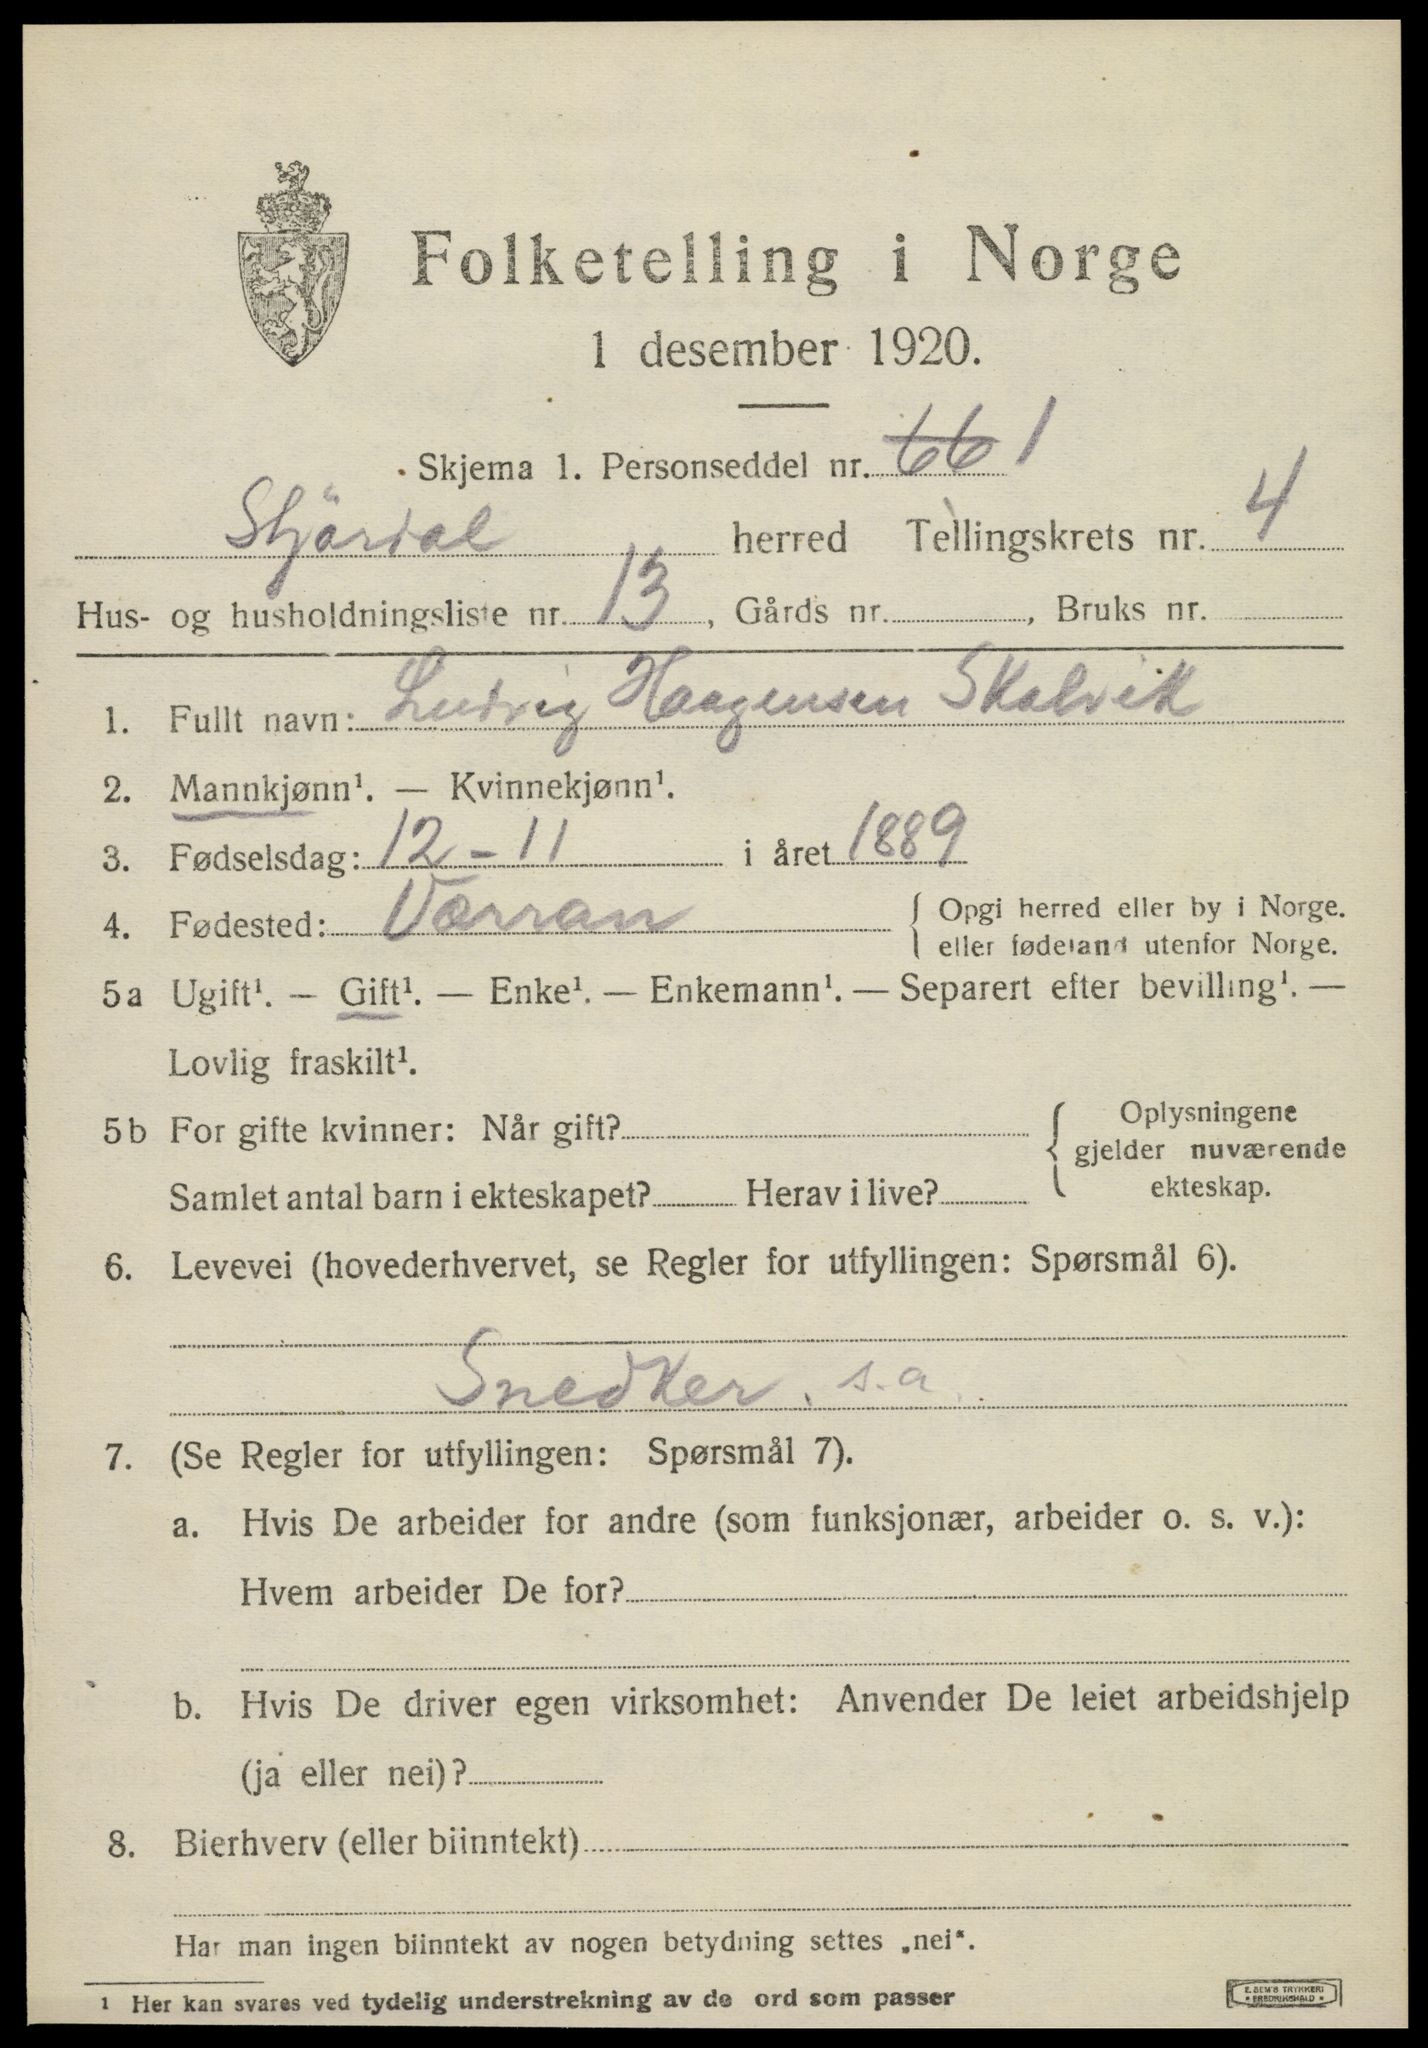 Folketelling i Norge
1 desember 1920.
Skjema 1. Personseddel nr. 66 1
Stjördal herred Tellingskrets nr. 4
Hus- og husholdningsliste nr. 13, Gårds nr. , Bruks nr.
1. Fullt navn: Ludvig Haagensen Skalvik
2. Mannkjønn¹. — Kvinnekjønn¹.
3. Fødselsdag: 12-11 i året 1889
4. Fødested: Værran { Opgi herred eller by i Norge.
eller fødeland utenfor Norge.
5a Ugift¹. — Gift¹. — Enke¹. — Enkemann¹. — Separert efter bevilling¹. —
Lovlig fraskilt¹.
5b For gifte kvinner: Når gift? { Oplysningene
gjelder nuværende
Samlet antal barn i ekteskapet? Herav i live? ekteskap.
6. Levevei (hovederhvervet, se Regler for utfyllingen: Spørsmål 6).
Snedker. s.a.
7. (Se Regler for utfyllingen: Spørsmål 7).
a. Hvis De arbeider for andre (som funksjonær, arbeider o. s. v.):
Hvem arbeider De for?
b. Hvis De driver egen virksomhet: Anvender De leiet arbeidshjelp
(ja eller nei)?
8. Bierhverv (eller biinntekt)
Har man ingen biinntekt av nogen betydning settes „nei".
1 Her kan svares ved tydelig understrekning av de ord som passer
E. SEM'S TRYKKERI
* FREDRIKSHALD *